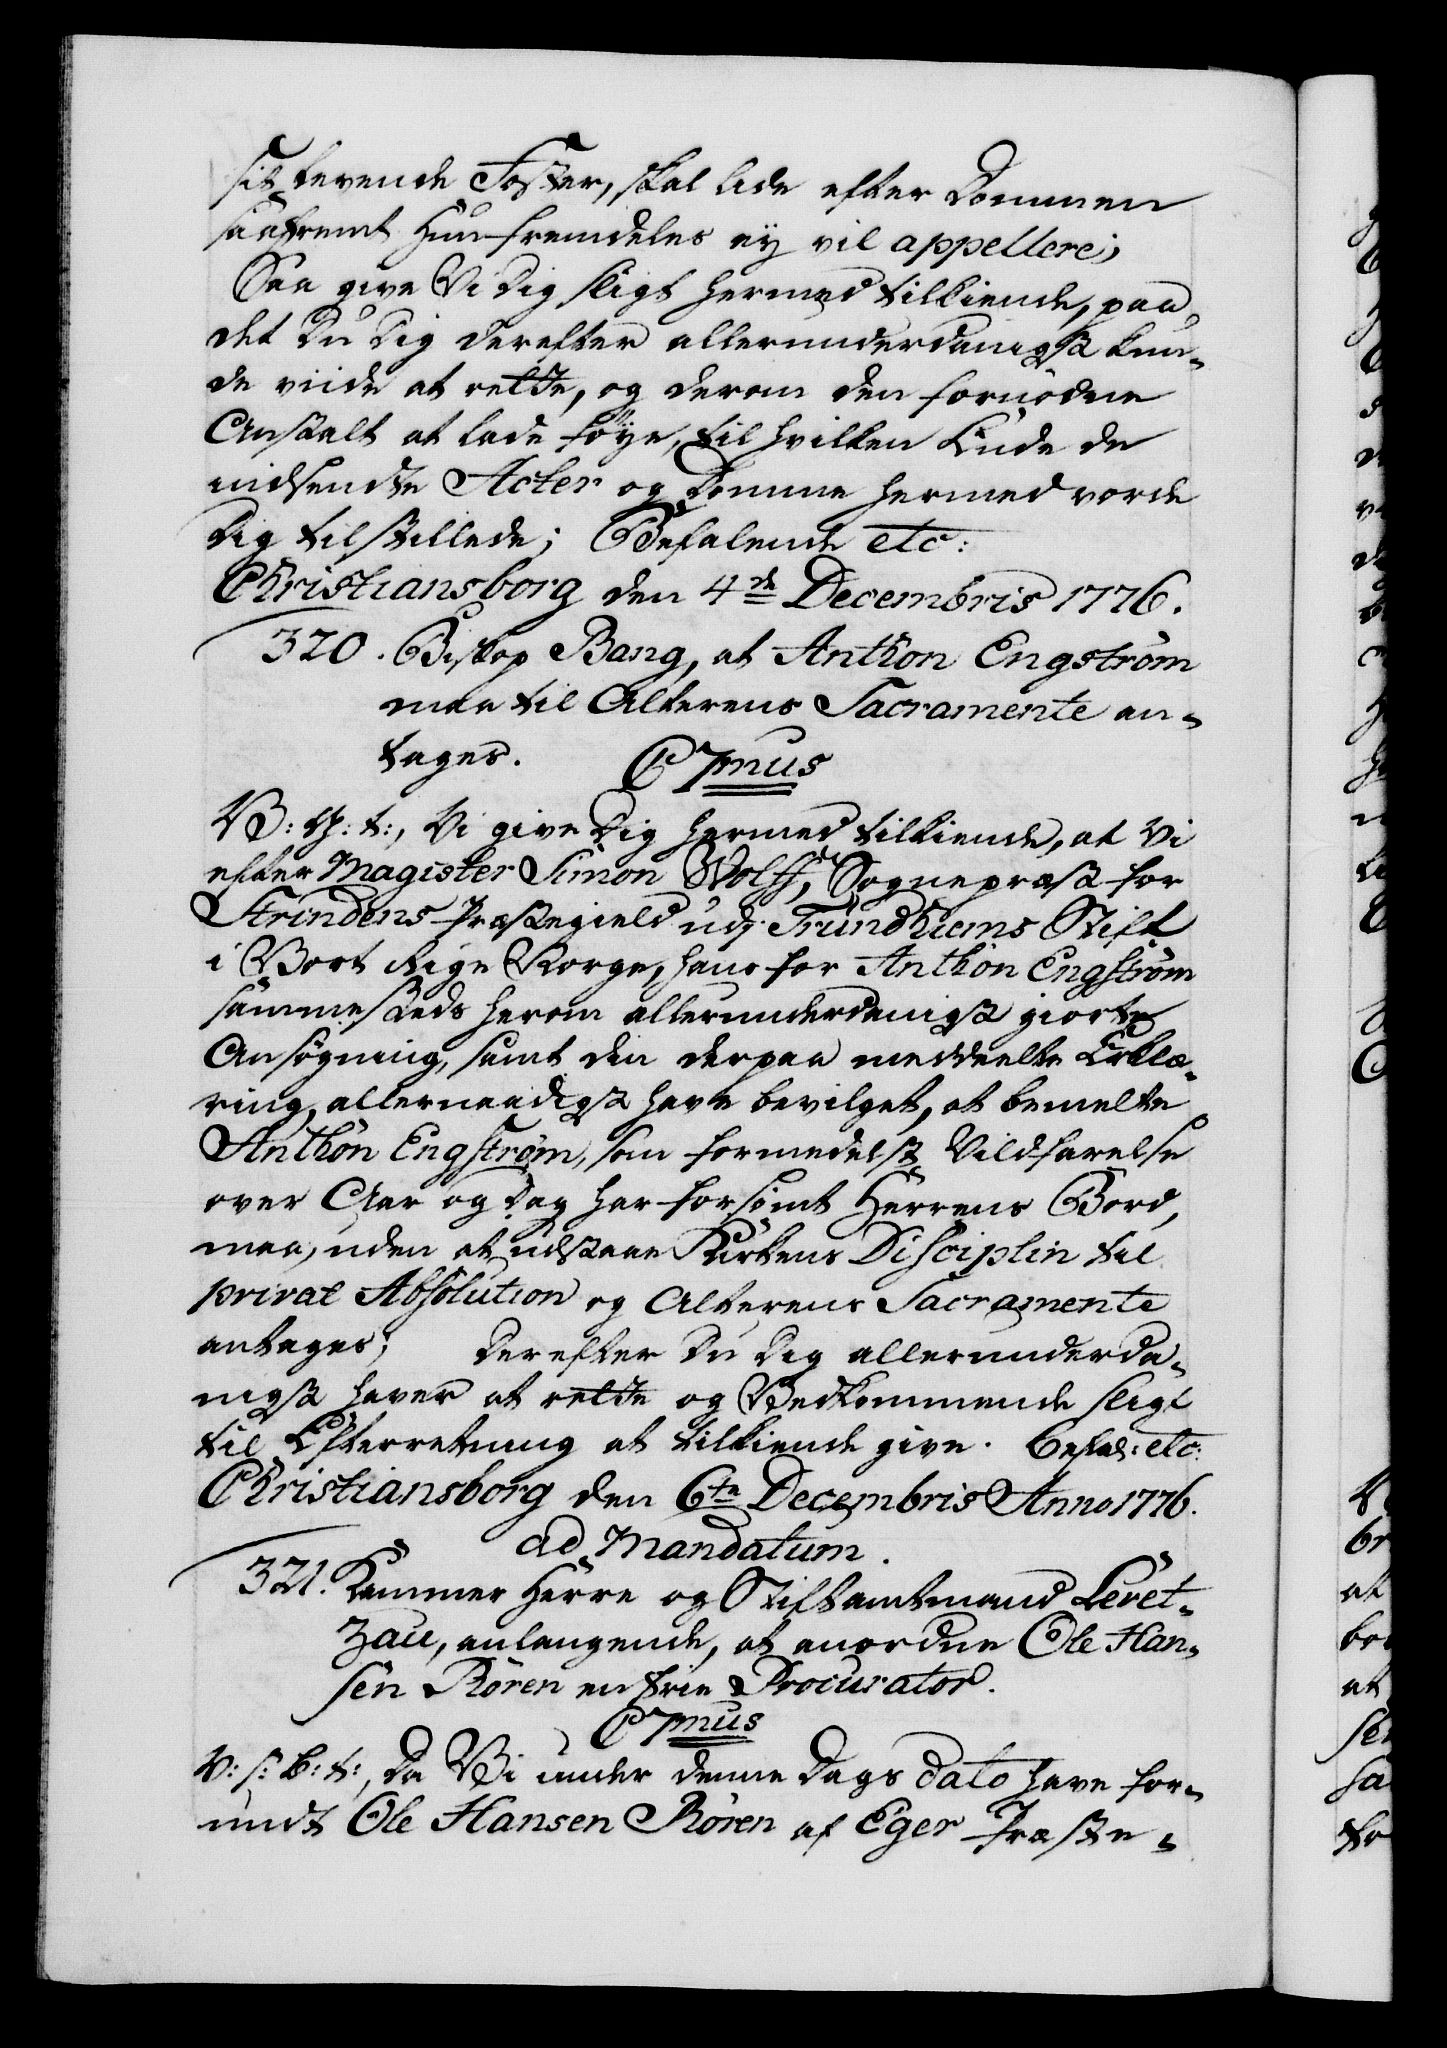 sit bærende Foster, skal lide efter Dommen
saafremt Hun fremdeles ey vil appellere;
Saa give Vi Dig sligt hermed tilkiende, paa
det Du Dig derefter allerunderdanigst kun-
de viide at rette, og derom den fornødne
Anstalt at lade føye, til hvilken Ende de
indsendte Acter og Domme hermed vorde
Dig tilstillede; Befalende etc:
Christiansborg den 4de Decembris 1776.
320. Biskop Bang, at Anthon Engstrøm
maa til Alterens Sacramente an-
tages.
C 7mus
V: G: t:, Vi give Dig hermed tilkiende, at Vi
efter Magister Simon Wolff, Sognepræst for
Strindens Præstegield udj Trundhiems Stift
i Vort Rige Norge, hans for Anthon Engstrøm
sammesteds herom allerunderdanigst giorte
Ansøgning, samt den derpaa meddeelte Erklæ-
ring, allernaadigst have bevilget, at bemelte
Anthon Engstrøm, som formedelst Vildfarelse
over Aar og Dag har forsømt Herrens Bord,
maa, uden at udstaae Kirkens Disciplin til
privat Absolution og Alterens Sacramente
antages; Derefter Du Dig allerunderda-
nigst haver at rette og Vedkommende sligt
til Efterretning at tilkiende give. Befal: etc:
Christiansborg den 6te Decembris Anno 1776.
ad Mandatum.
321. Kammer Herre og Stiftamtmand Levet-
zau, anlangende, at anordne Ole Han-
sen Røren en frie Procurator.
C 7mus
V: s: B: t:, Da Vi under denne Dags dato have for-
undt Ole Hansen Røren af Eger Præste-